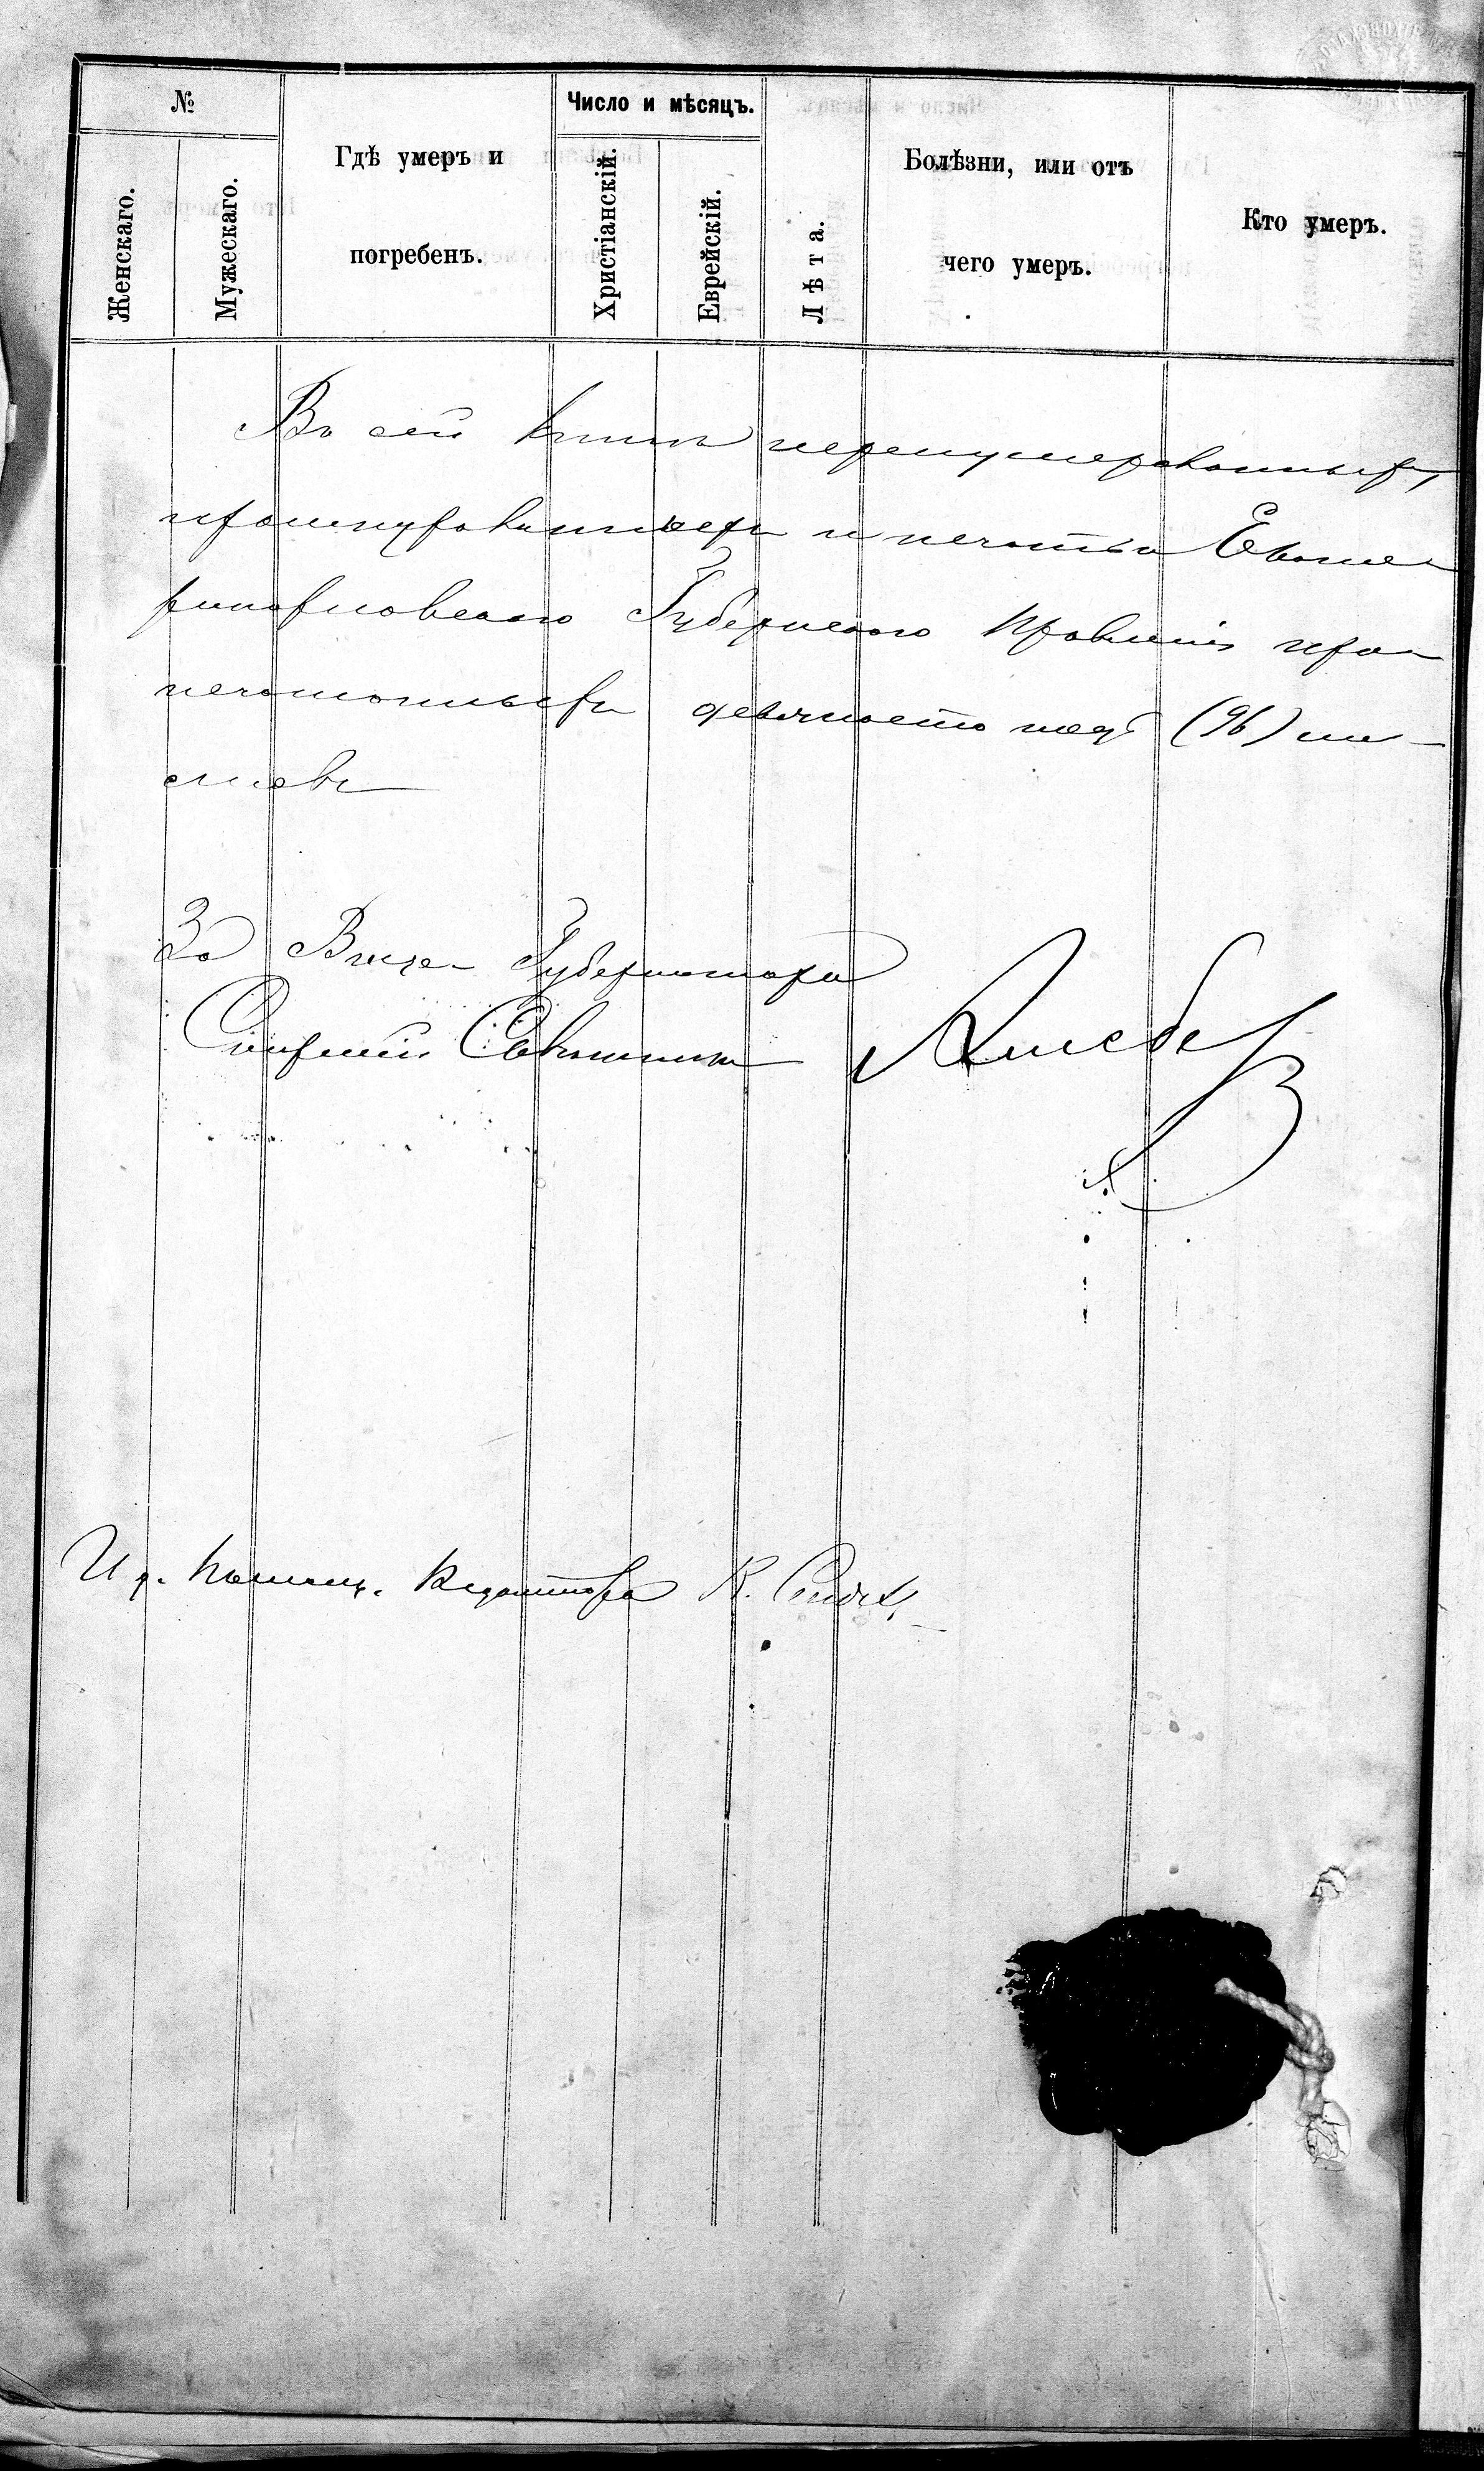 №
Женскаго.
Мужескаго.
Гдѣ умеръ и
погребенъ.
Число и мѣсяцъ.
Христіанскій.
Еврейскій.
Лѣта.
Болѣзни, или отъ
чего умеръ.
Кто умеръ.
Въ сей книгѣ перенумерованныхъ,
прошнурованныхъ и печатью Екате-
ринославскаго Губернскаго Правленія про-
печатанныхъ девяносто шесть (96) ли-
стовъ
За Вице-Губернатора
Старшій Совѣтникъ
И д.